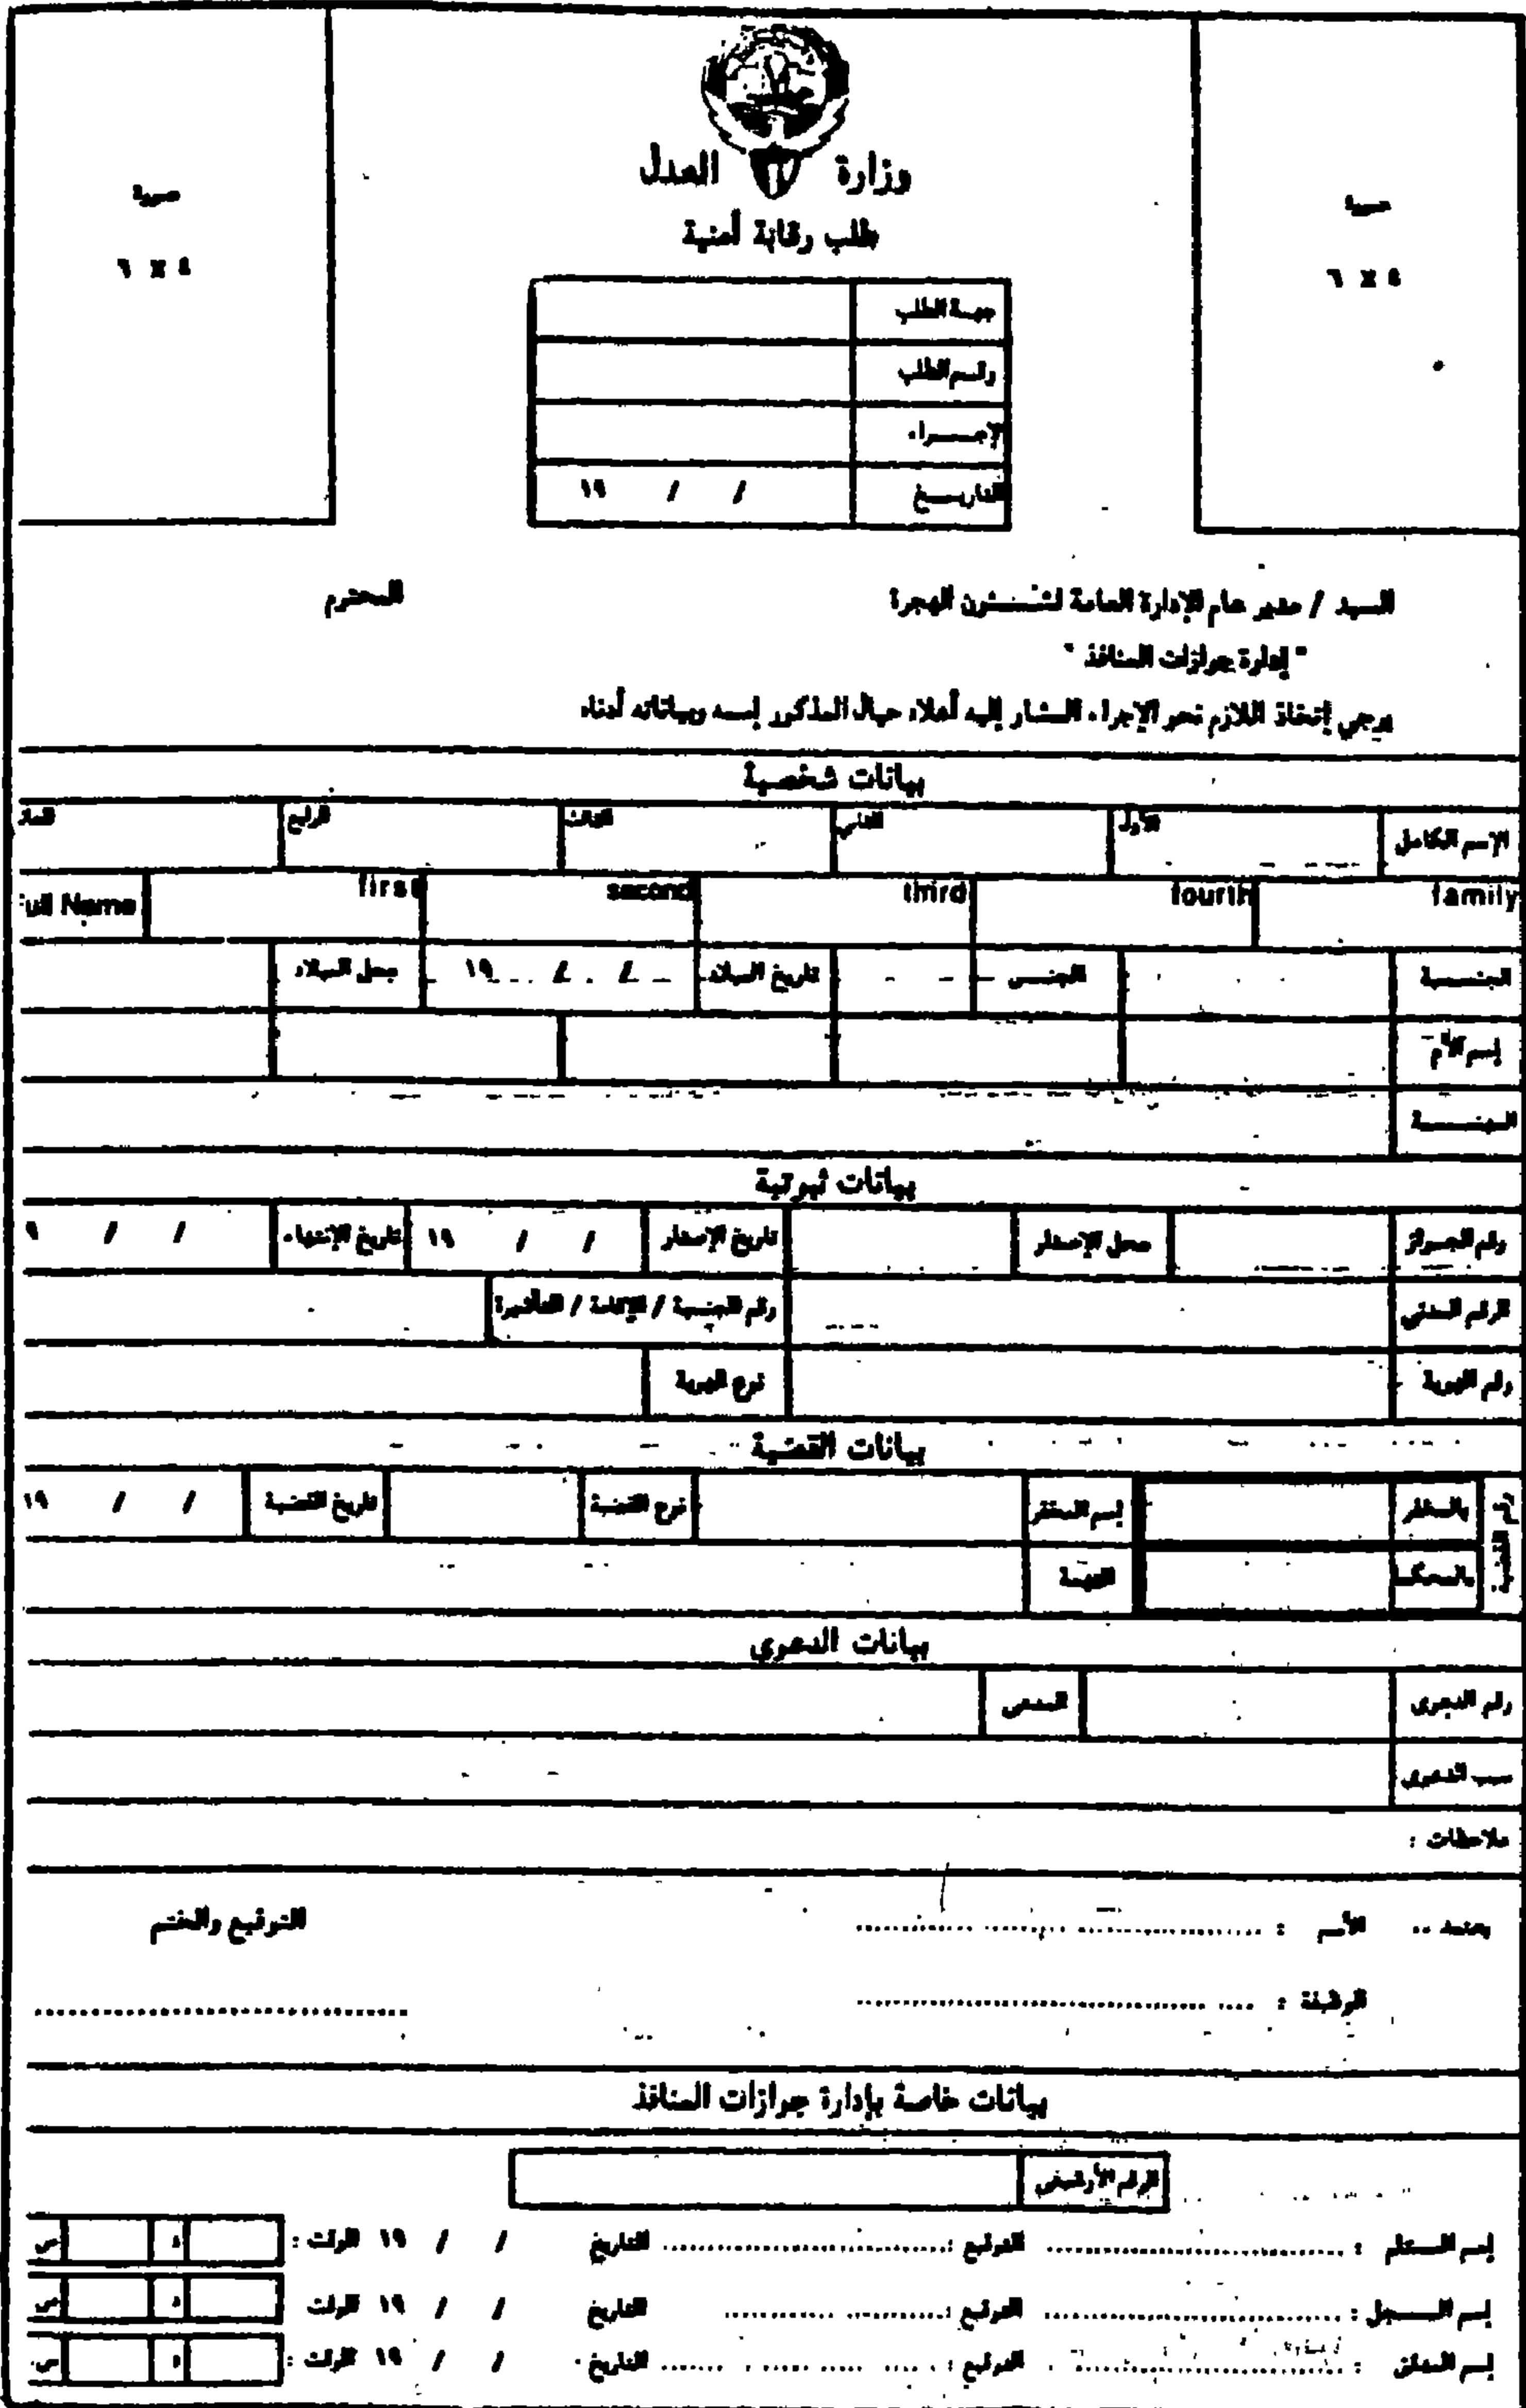 وزارة العدل
طلب رقابة أمنية
صورة
٤ x ٦
صورة
٤ x ٦
جهة الطلب
رقم الطلب
الإجراء
التاريخ / / ١٩
السيد / مدير عام الإدارة العامة لشئون الهجرة المحترم
" إدارة جوازات المنافذ "
يرجي إتخاذ اللازم نحو الإجراء المشار إليه أعلاه حيال المذكور إسمه وبياناته أدناه
بيانات شخصية
الإسم الكامل الأول الثاني الثالث الرابع
Full Name first second third fourth family
الجنسية الجنس تاريخ الميلاد / / ١٩ محل الميلاد
إسم الأم
المهنة
بيانات ثبوتية
رقم الجواز محل الإصدار تاريخ الإصدار / / ١٩ تاريخ الإنتهاء / / ٩
الرقم المدني رقم الجنسية / الإقامة / التأشيرة
رقم الهوية نوع الهوية
بيانات القضية
رقم القضية بالمخفر إسم المخفر نوع القضية تاريخ القضية / / ١٩
بالمحكمة التهمة
بيانات الدعوى
رقم الدعوى المدعى
سبب الدعوى
ملاحظات :
يعتمد .. الأسم : التوقيع والختم
الوظيفة :
بيانات خاصة بإدارة جوازات المنافذ
الرقم الأرشيفي
إسم المستلم : التوقيع : التاريخ / / ١٩ الوقت : د س
إسم المسجل : التوقيع : التاريخ / / ١٩ الوقت د س
إسم المدقق : التوقيع : التاريخ / / ١٩ الوقت : د س